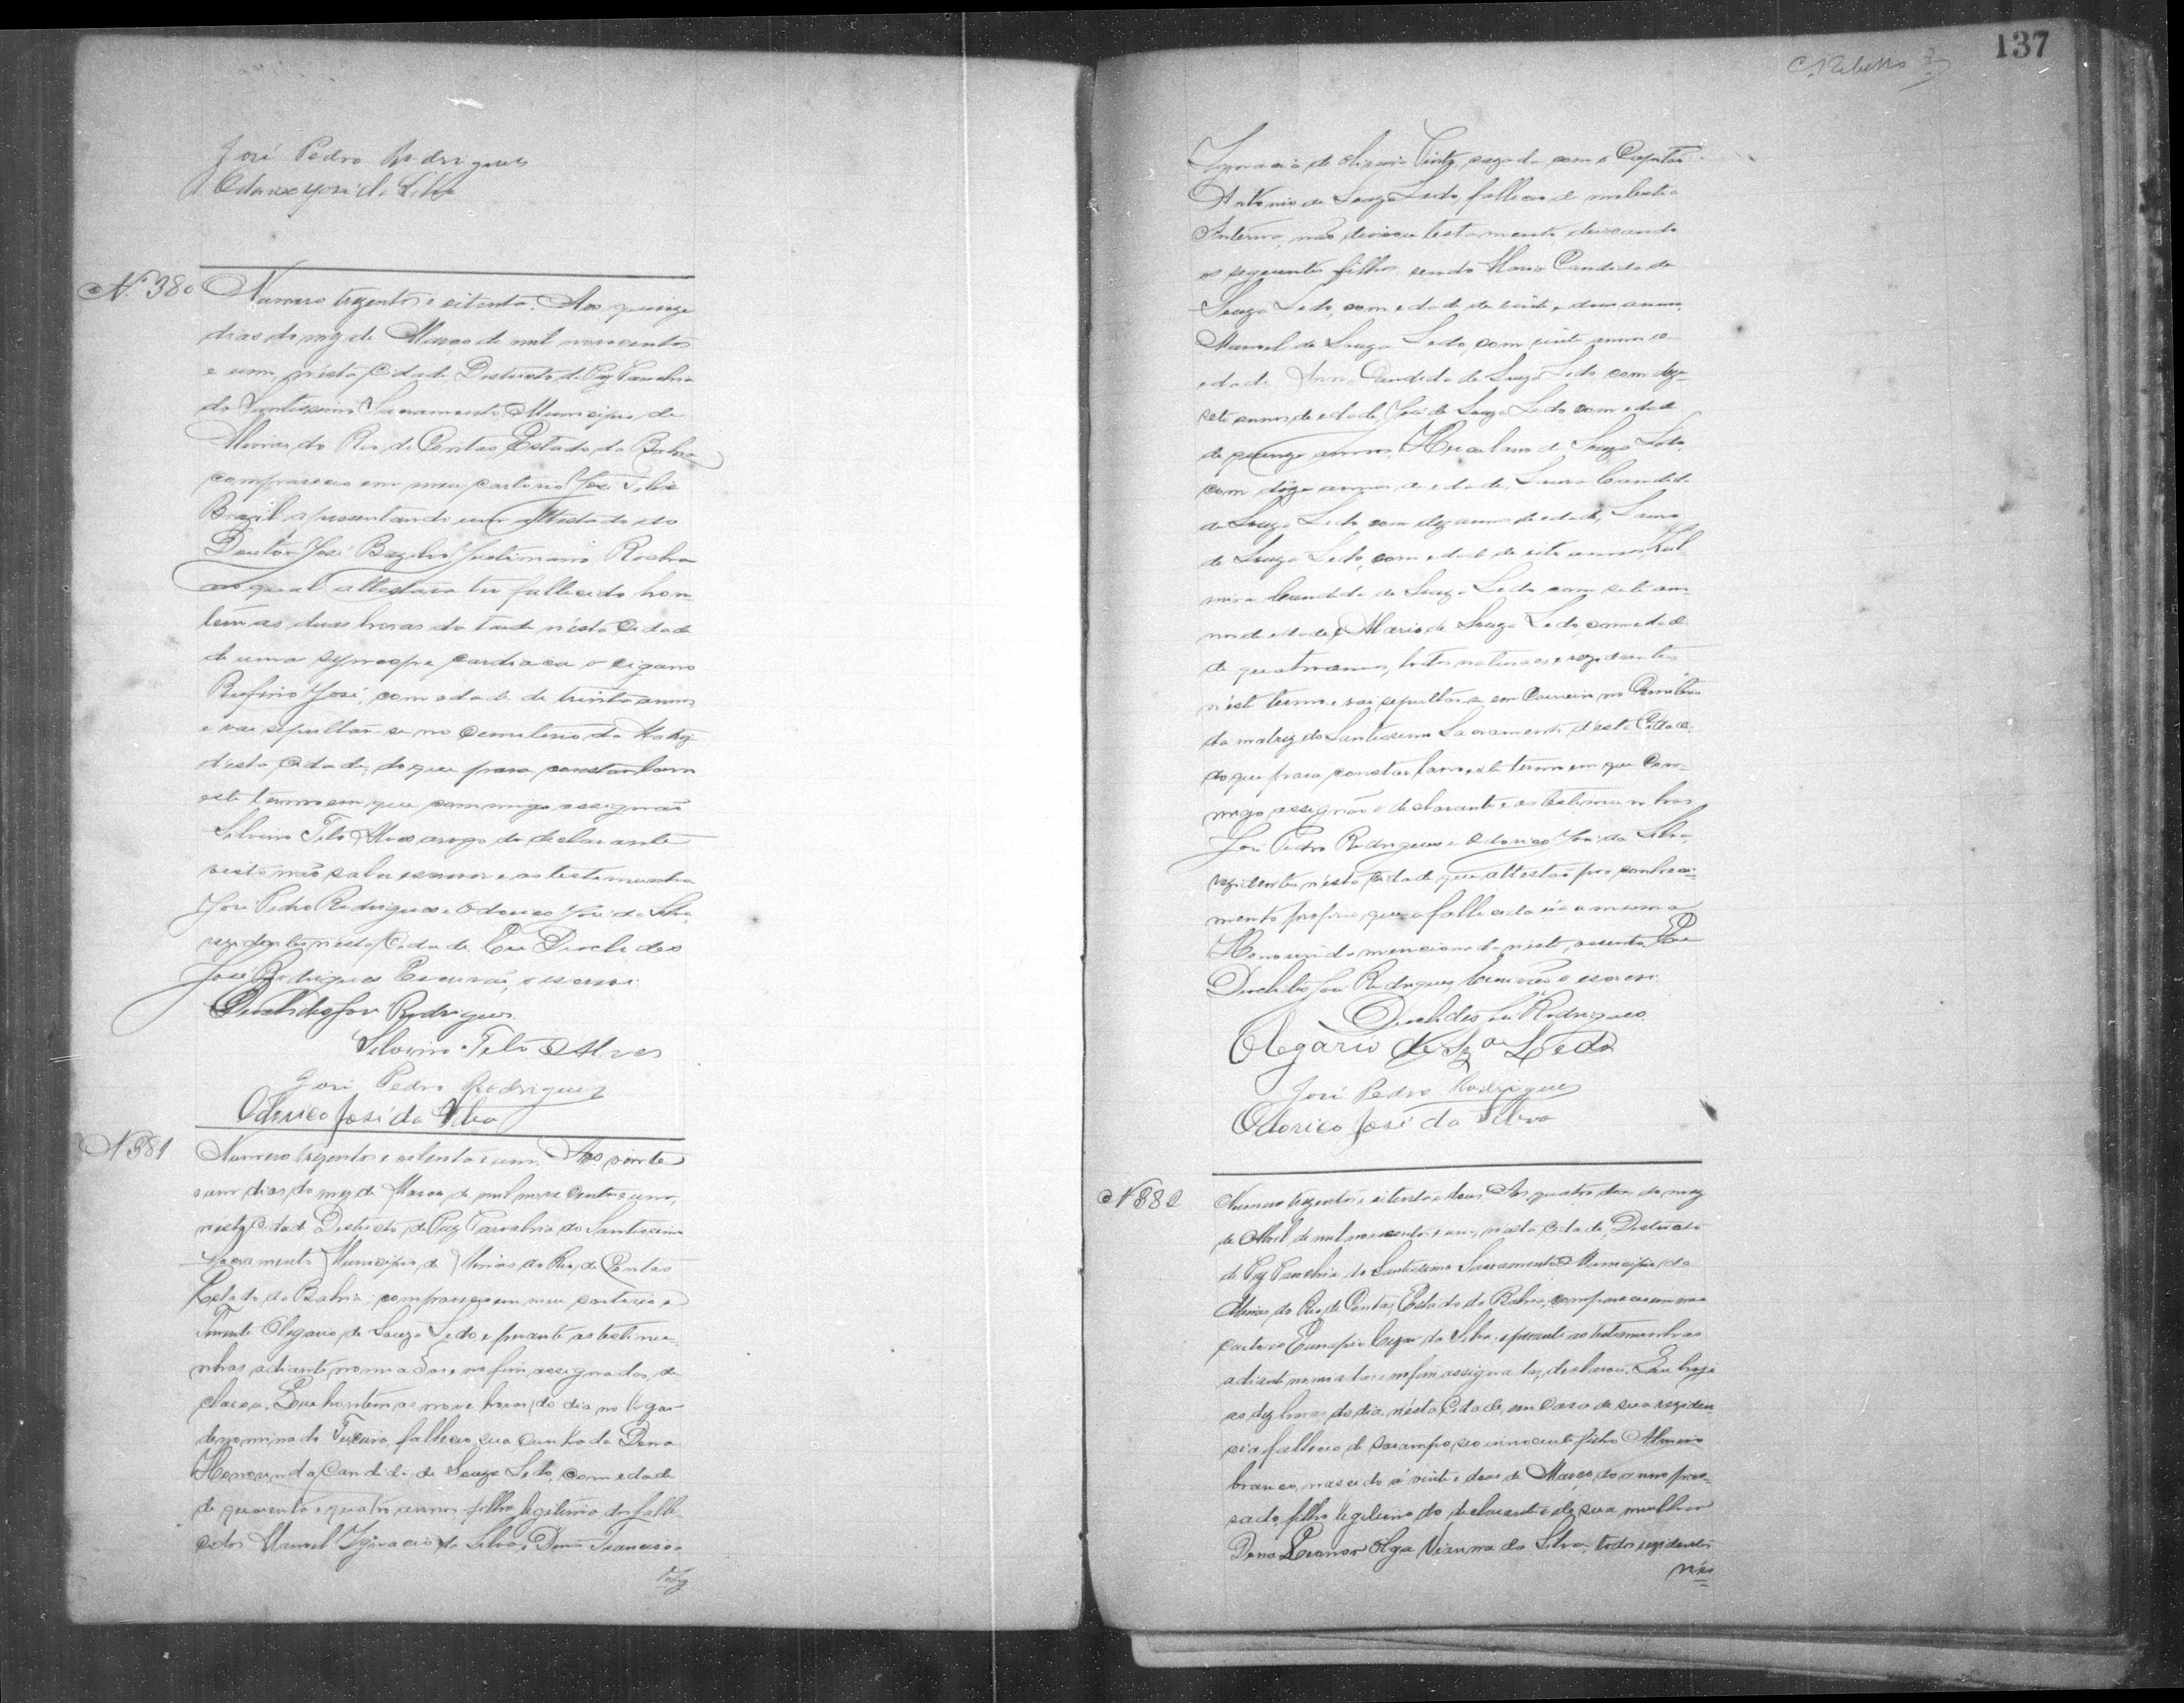 José Pedro Rodrigues
Odorico José da Silva
N. 380
Numero trezentos e oitenta. Aos quinze
dias do mez de Março de mil novecentos
e um, n'esta Cidade Districto de Paz Parochia
do Santissimo Sacramento, Municipio de
Minas do Rio de Contas Estado da Bahia
compareceo em meu cartorio José
Brazil apresentando um attestado do
Doutor José Bazilio Justiniano Rocha
no qual attestava ter fallecido hon-
tem as duas horas da tarde n'esta Cidade
de uma syncope cardiaca o cigano
Rufino José, com edade de trinta annos
e vai sepultar-se no Cemiterio da Matriz
d'esta Cidade, do que para constar lavro
este termo em que commigo assignão
Silvino Telo Alves arogo do declarante
visto não saber escrever e as testemunhas
José Pedro Rodrigues e Odorico José da Silva,
rezidentes n'esta Cidade. Eu Deuclides
José Rodrigues Escrivão, o escrevi.
Deuclides José Rodrigues.
Silvino Telo Alves
José Pedro Rodrigues
Odorico José da Silva
N 381
Numero trezentos e oitenta e um. Aos vinte
e um dias do mez de Março de mil nove centos e um,
n'esta Cidade Districto de Paz Parochia do Santissimo
Sacramento Municipio de Minas do Rio de Contas
Estado da Bahia, compareceo em meu cartorio o
Tenente Olegario de Souza Ledo e perante as testemu-
nhas adiante nomiadas e no fim assignadas, de-
clarou. Que hontem as nove horas do dia no lugar
denominado fallecio sua cunhada Dona
Honorinda Candida de Souza Ledo, com edade
de quarenta e quatro annos, filha legitima dos falle-
cidos Manoel Ignacio da Silva e Dona Francisca
Ig
137
Ignacia de Oliveira cazada com o Capitão
Antonio de Souza Ledo, falleceo de molestia
Interna, não deixou testamento deixando
os seguintes filhos sendo Maria Candida de
Souza Ledo, com edade de vinte e dous annos,
Manoel de Souza Ledo, com vinte annos de
edade Anna Candida de Souza Ledo com deze-
sete annos de edade, José de Souza Ledo com edade
de quinze annos, Herculano de Souza Ledo,
com doze annos de edade, Laura Candida
de Souza Ledo, com dez annos de edade, Lauro
de Souza Ledo, com edade de oito annos Zul-
mira Candida de Souza Ledo com sete an-
nos de edade e Mario de Souza Ledo, com edade
de quatro annos, todos naturaes e rezidentes
n'este termo e vai sepultar-se em Carneiro no Cemiterio
da matriz do Santissimo Sacramento d'esta Cidade.
do que para constar lavro este termo em que Com-
migo assignão o declarante e as testemunhas
José Pedro Rodrigues e Odorico José da Silva,
rezidentes n'esta Cidade que attestão por conheci-
mento proprio, que a fallecida é a mesma
Honorinda mencionada n'este assento. Eu
Deuclides José Rodrigues, Escrivão o escrevi.
Deuclides José Rodrigues.
Olegario de Sza Ledo
José Pedro Rodrigues
Odorico José da Silva
N 382
Numero trezentos e oitenta e dous. Aos quatro dias do mez
de Abril de mil novecentos e um, nesta Cidade, Districto
de Paz Parochia do Santissimo Sacramento Municipio de
Minas do Rio de Contas, Estado da Bahia, compareceo em meu
cartorio Cezar da Silva e perante as testemunhas
adiante nomiadas e no fim assignadas, declarou. Que hoje
as dez horas do dia, n'esta Cidade, em Casa de sua reziden-
cia falleceo de sarampo seo innocente filho
branco, nascido á vinte e dous de Março, do anno pas-
sado, filho legitimo do declarante e de sua mulher
Dona Leonor Olga Vianna da Silva, todos rezidentes
n'es